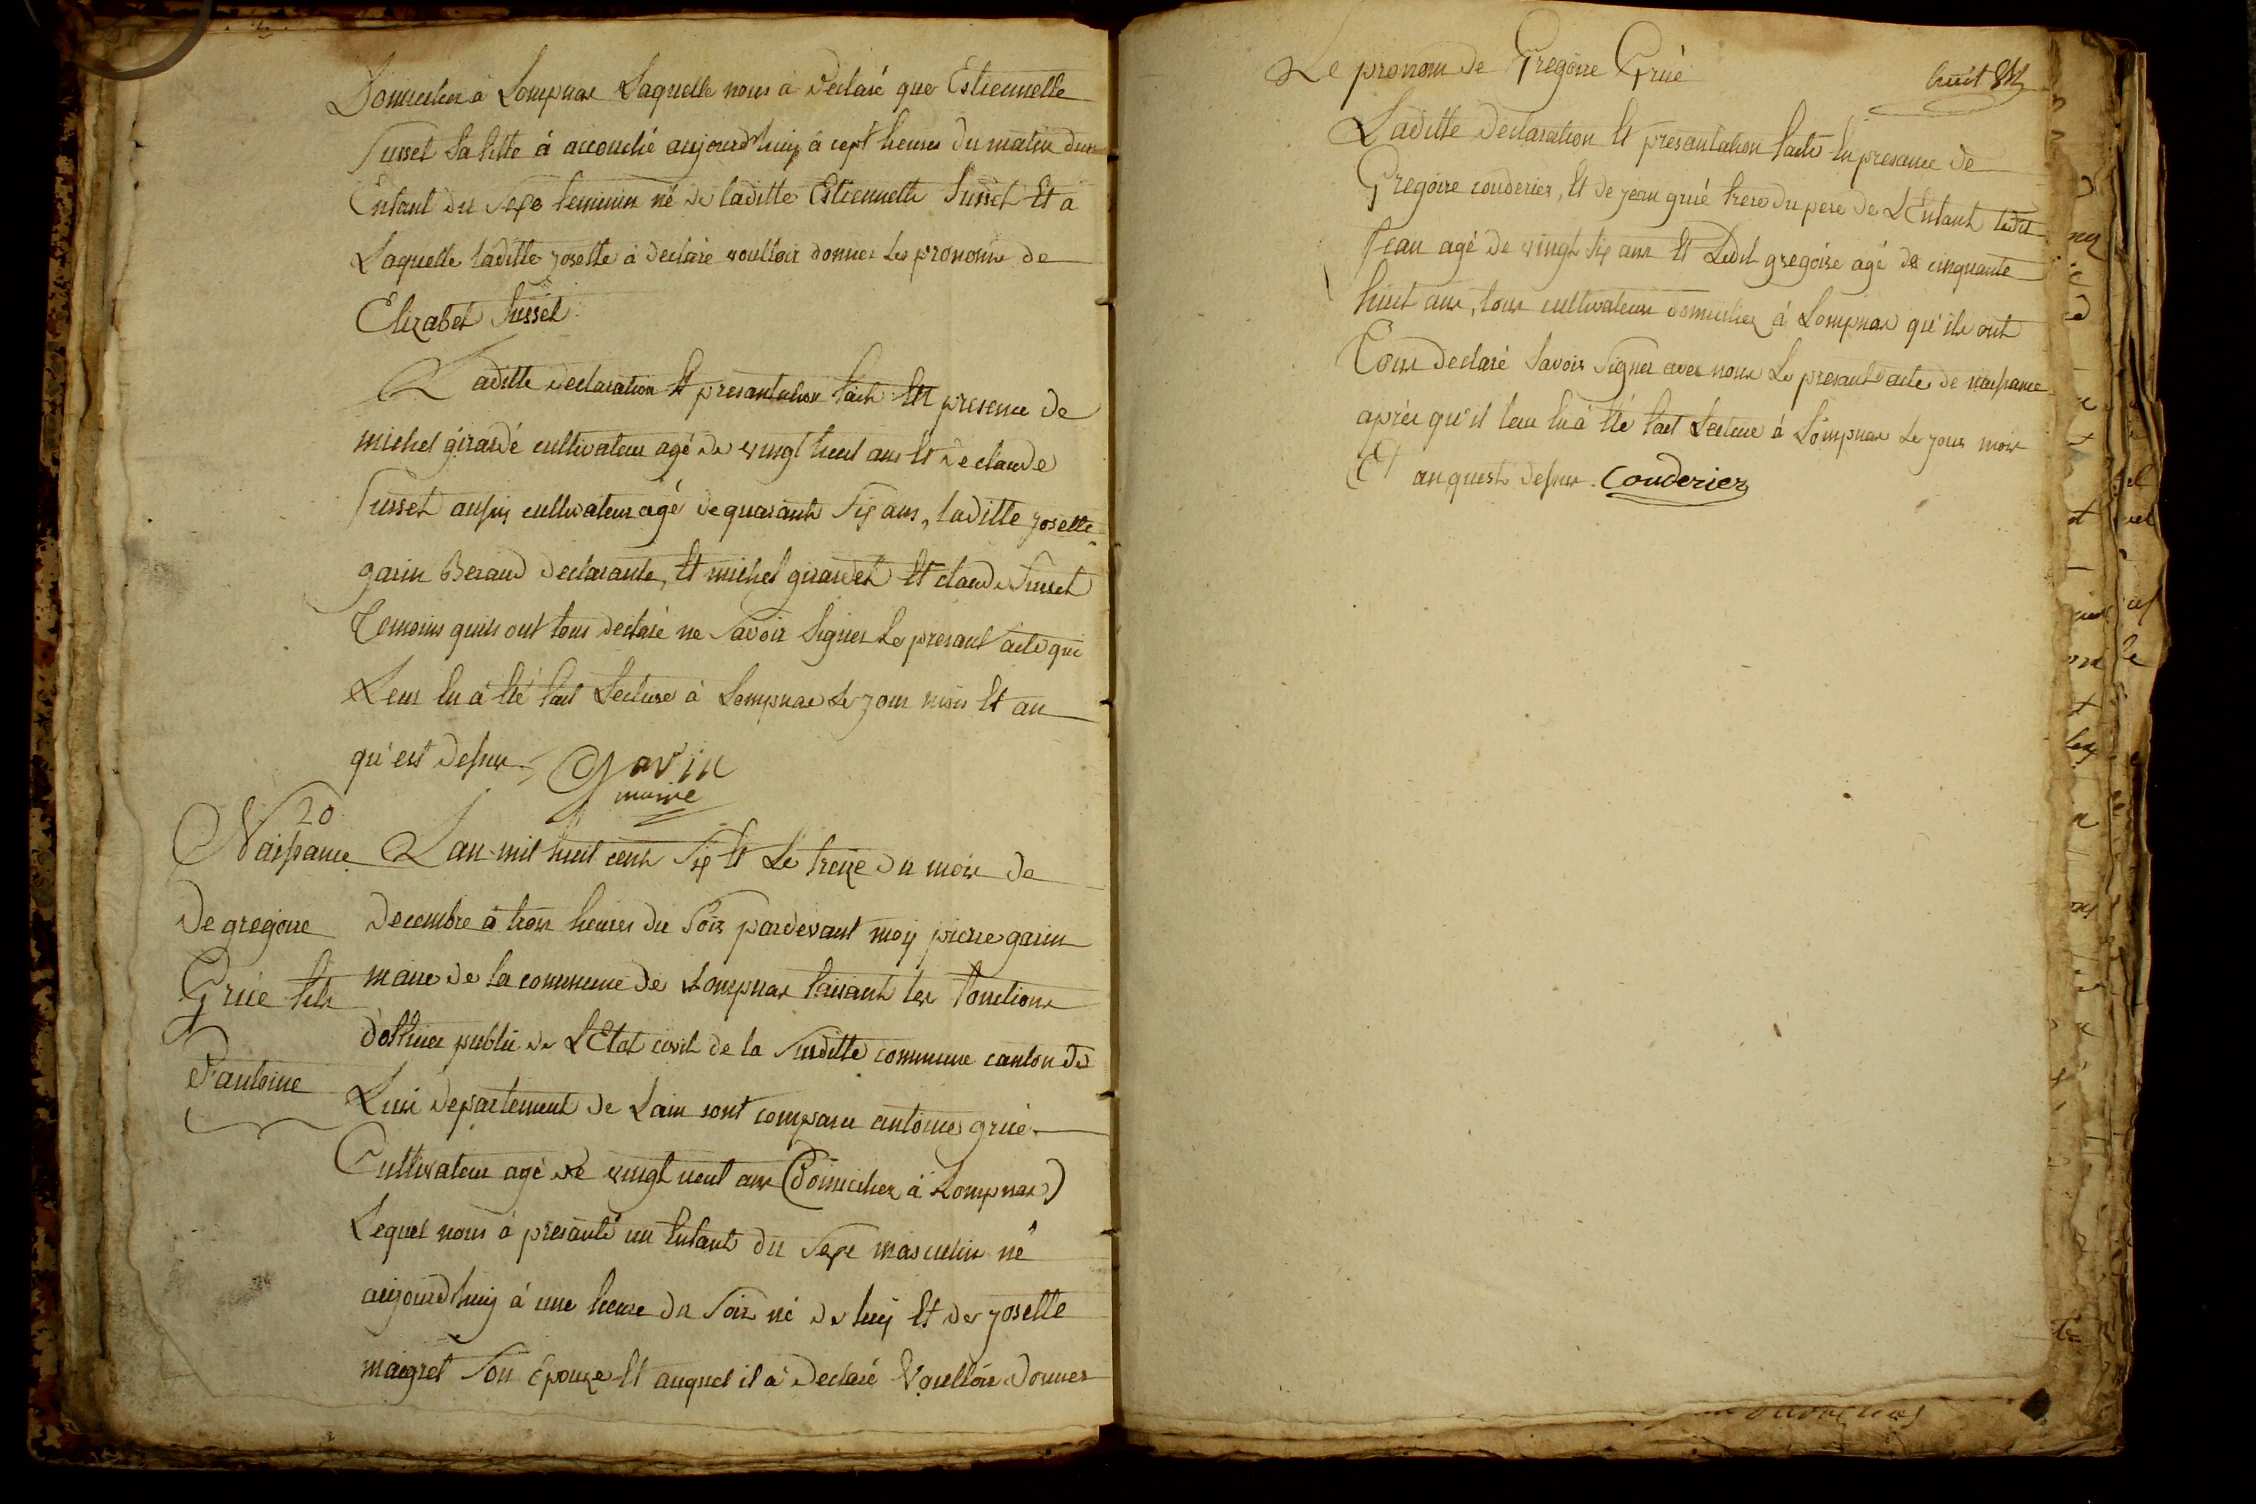 Domicilier à Lompnas Laquelle nous à declaré que Estiennette
Jusset sa fille à accouché aujourd'huy à cept heures du matin dun
Enfant du sexe feminin né de laditte Estiennette Jusset Et a
Laquelle laditte josette à declaré voulloir donner les pronoms de
Elizabet Jusset
Laditte declaration Et presantation faite En presence de
michel girardé cultivateur agé de vingt huit ans Et de claude
Jusset aussy cultivateur agé de quarante six ans, laditte josette
garin Beraud declarante, Et michel girardet Et claude Jusset
Temoins quils ont tous declaré ne savoir signer Le presant acte qui
Leur En à Eté fait Lecture à Lompnas Le jour mois Et an
qu'est dessus. Garin
maire
20
Naissance
De gregoire
Grué fils
d'antoine
Lan mil huit cent six Et Le treize du mois de
decembre à trois heures du soir pardevant moy pierre garin
maire de la commune de Lompnas faisant les fonctions
d'officier public de L'Etat civil de la susditte commune canton de
Luis departement de Lain sont comparu antoine grué
Cultivateur agé de vingt neuf ans (Domicilier à Lompnas)
Lequel nous à presanté un Enfant du sexe masculin né
aujourdhuy à une heure du soir né de luy Et de josette
maigret son Epouze Et auquel il à declaré Voulloir donner
Le pronom de Gregoire Grué
huit
Laditte declaration Et presantation faite En presance de
Gregoire couderier, Et de jean grué frere du pere de L'Enfant ledit
Jean agé de vingt six ans Et Ledit gregoire agé de cinquante
huit ans, tous cultivateurs domicilier à Lompnas qu'ils ont
Tous declaré savoir signer avec nous Le presant acte de naissance
après qu'il leur En à Eté fait Lecture à Lompnas Le jour mois
Et an quest dessus. Couderier